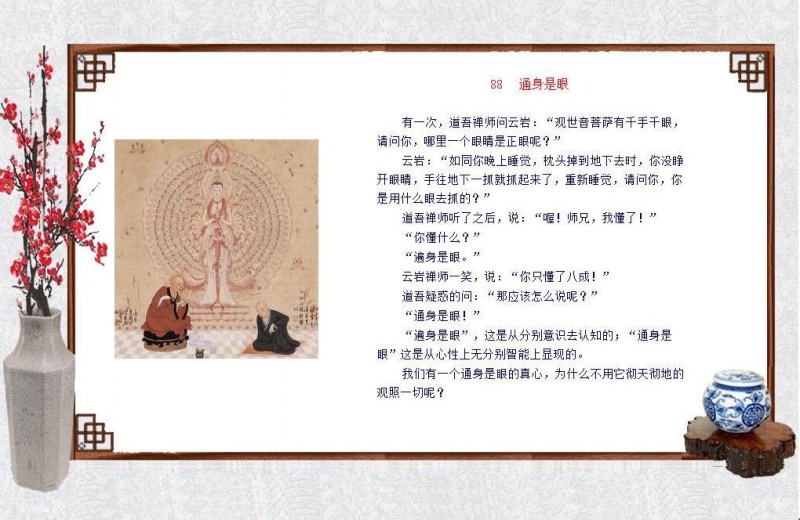 88 通身是眼
有一次，道吾禅师问云岩：“观世音菩萨有千手千眼，
请问你，哪里一个眼睛是正眼呢？”
云岩：“如同你晚上睡觉，枕头掉到地下去时，你没睁
开眼睛，手往地下一抓就抓起来了，重新睡觉，请问你，你
是用什么眼去抓的？”
道吾禅师听了之后，说：“喔！师兄，我懂了！”
“你懂什么？”
“遍身是眼。”
云岩禅师一笑，说：“你只懂了八成！”
道吾疑惑的问：“那应该怎么说呢？”
“通身是眼！”
“遍身是眼”，这是从分别意识去认知的；“通身是
眼”这是从心性上无分别智能上显现的。
我们有一个通身是眼的真心，为什么不用它彻天彻地的
观照一切呢？